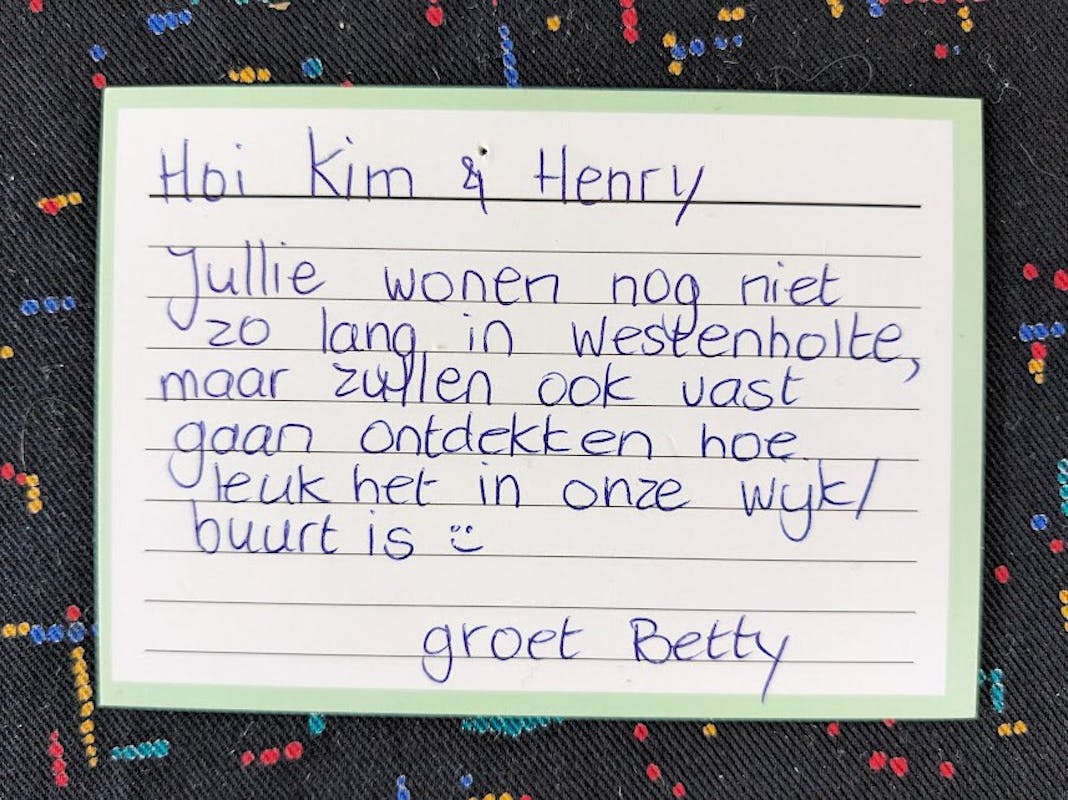 Hoi Kim & Henry
Jullie wonen nog niet
zo lang in Westenholte,
maar zullen ook vast
gaan ontdekken hoe
leuk het in onze wijk/
buurt is :)
groet Betty